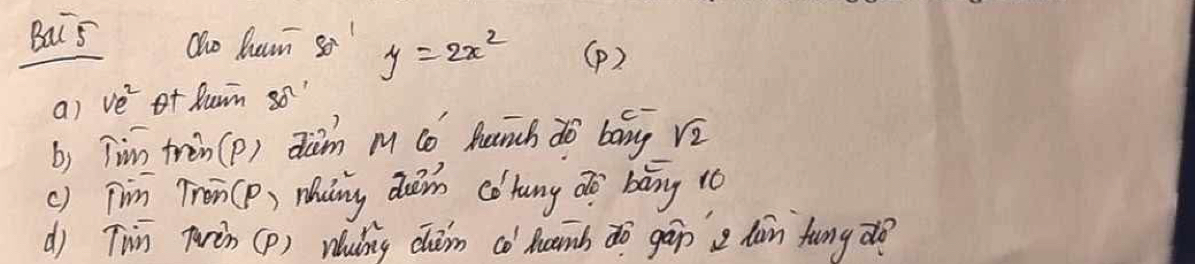 Bài 5 Cho hàm số y = 2x² (P)
a) Vẽ đt hàm số
b) Tìm trên (P) điểm M có hoành độ bằng √2
c) Tìm Trên (P) những điểm có tung độ bằng 10
d) Tìm trên (P) những điểm có hoành độ gấp 2 lần tung độ